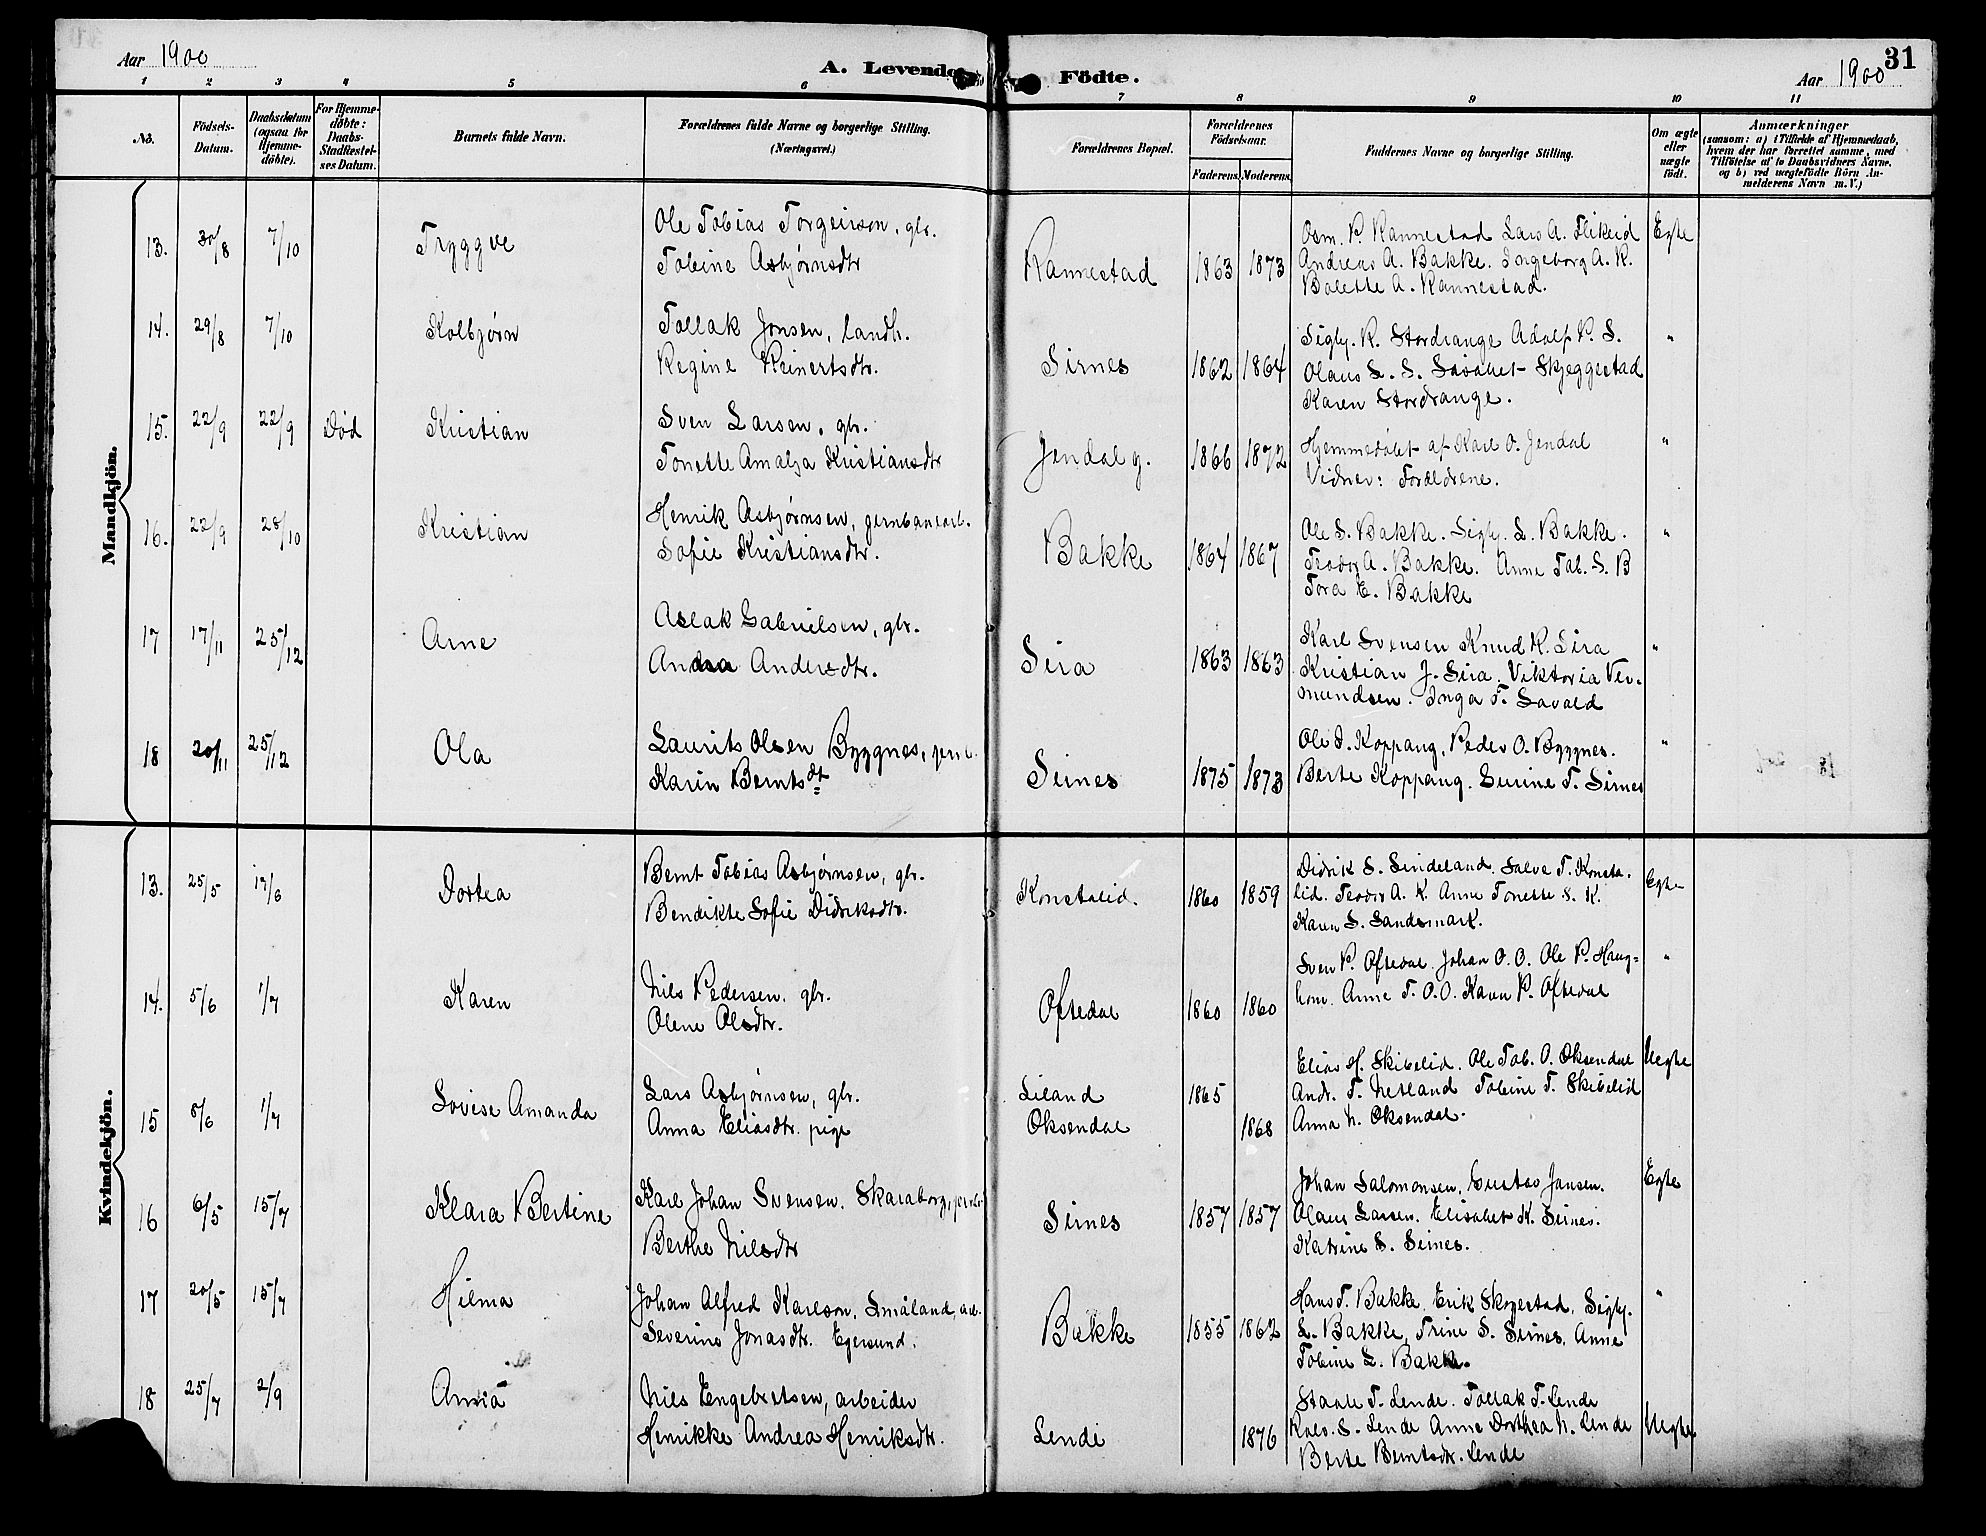 31
Aar 1900
A. Levende Födte.
Aar 1900
1 2 3 4 5 6 7 8 9 10 11
No.
Födsels-Datum.
Daabsdatum (ogsaa for Hjemme-döbte).
For Hjemme-döbte: Daabs-Stadfæstel-ses Datum.
Barnets fulde Navn.
Forældrenes fulde Navne og borgerlige Stilling.
(Næringsvei.)
Forældrenes Bopæl.
Forældrenes Födselsaar.
Faderens. Moderens.
Faddernes Navne og borgerlige Stilling.
Om ægte eller uægte födt.
Anmærkninger
(saasom: a) i Tilfælde af Hjemmedaab,
hvem der har forrettet samme, med
Tilföielse af to Daabsvidners Navne,
og b) ved uægtefödte Börn An-
melderens Navn m. V.)
Mandkjön.
13. 30/8 7/10 Tryggve
Ole Tobias Torgeirson, gbr.
Tobine Asbjørnsdtr
Rannestad 1863 1873
Osm. P. Rannestad Lars A. Flikeid
Andreas A. Bakke. Ingeborg A. R.
Bolette A. Rannestad.
Egte
14. 29/8 7/10 Kolbjørn
Tollak Jonsen, landh.
Regine Reinertsdtr.
Sirnes 1862 1864
Sigbj. R. Stordrange Adolf P. S.
Olaus L. S. Skjeggestad
Karen Stordrange.
"
15. 22/9 22/9 Død Kristian
Sven Larsen, gbr.
Tonette Amalja Kristiansdtr
Jendal g. 1866 1872
Hjemmedøbt af Karl O. Jendal
Vidner: Forældrene.
"
16. 22/9 28/10 Kristian
Henrik Asbjørnsen, jernbanearb.
Sofie Kristiansdtr.
Bakke 1864 1867
Ole S. Bakke. Sigbj. L. Bakke.
Teodor A. Bakke. Anne Tob. S. B
Tora E. Bakke
"
17 17/11 25/12 Arne
Aslak Gabrielsen, gbr.
Andrea Andersdtr.
Sira 1863 1863
Karl Svensen Knud K. Sira
Kristian J. Sira. Viktoria Ver-
mundsen. Inga T. Lavold
"
18 20/11 25/12 Ola
Laurits Olsen Byggnes, jernb.
Karin Berntsdt
Sirnes 1875 1873
Ole J. Koppang, Peder O. Byggnes.
Berte Koppang. Surine T. Sirnes
"
Kvindekjön.
13. 25/5 17/6 Dortea
Bernt Tobias Asbjørnsen, gbr.
Bendikte Sofie Didriksdtr.
Konstalid. 1860 1859
Didrik S. Sindeland. Salve T. Konsta-
lid. Teodor A. K. Anne Tonette S. K.
Karen S. Sandsmark.
Egte
14. 5/6 1/7 Karen
Nils Pedersen, gbr.
Olene Olsdtr.
Oftedal 1860 1860
Sven P. Oftedal. Johan O. O. Ole P. Haug-
hom. Anne T. O. O. Karen P. Oftedal
"
15 8/6 1/7 Lovise Amanda
Lars Asbjørnsen, gbr.
Anna Eliasdtr. pige
Liland 1865
Oksendal 1868
Elias H. Skibelid. Ole Tob. O. Oksendal
Andr. T. Netland Tobine T. Skibelid
Anna N. Oksendal.
Uegte
16 6/5 15/7 Klara Bertine
Karl Johan Svensen. Skaraborg, jernb
Berthe Nilsdtr
Sirnes 1857 1857
Johan Salomonsen, Gustav Jansen.
Olaus Larsen. Elisabet K. Sirnes.
Katrine S. Sirnes.
Egte
17 20/5 15/7 Hilma
Johan Alfred Karlson, Småland, arb.
Severine Jonasdtr. Egersund.
Bakke 1855 1862
Hans T. Bakke. Erik Skogestad. Sigbj.
L. Bakke, Trine S. Sirnes. Anne
Tobine L. Bakke.
"
18 25/7 2/9 Anna
Nils Engebretsen, arbeider
Henrikke Andrea Henriksdtr.
Lende 1876
Staale T. Lende. Tollak T. Lende
S. Lende Anne Dorthea N. Lende
Berte Berntsdtr. Lende
Uegte